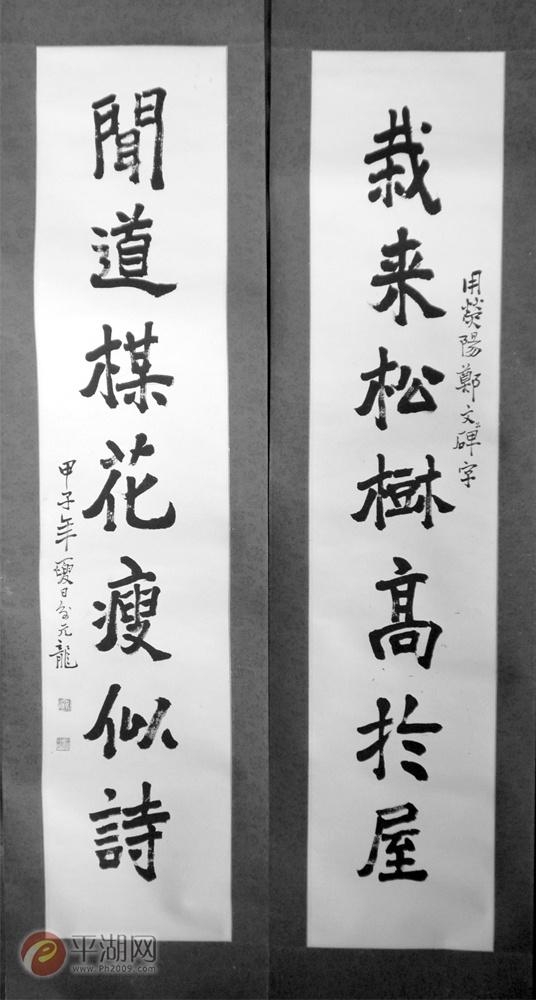 栽来松樹髙扵屋
用滎陽鄭文碑字
聞道楳花瘦似詩
甲子年夏日元龍
平湖网
www.Ph2009.com